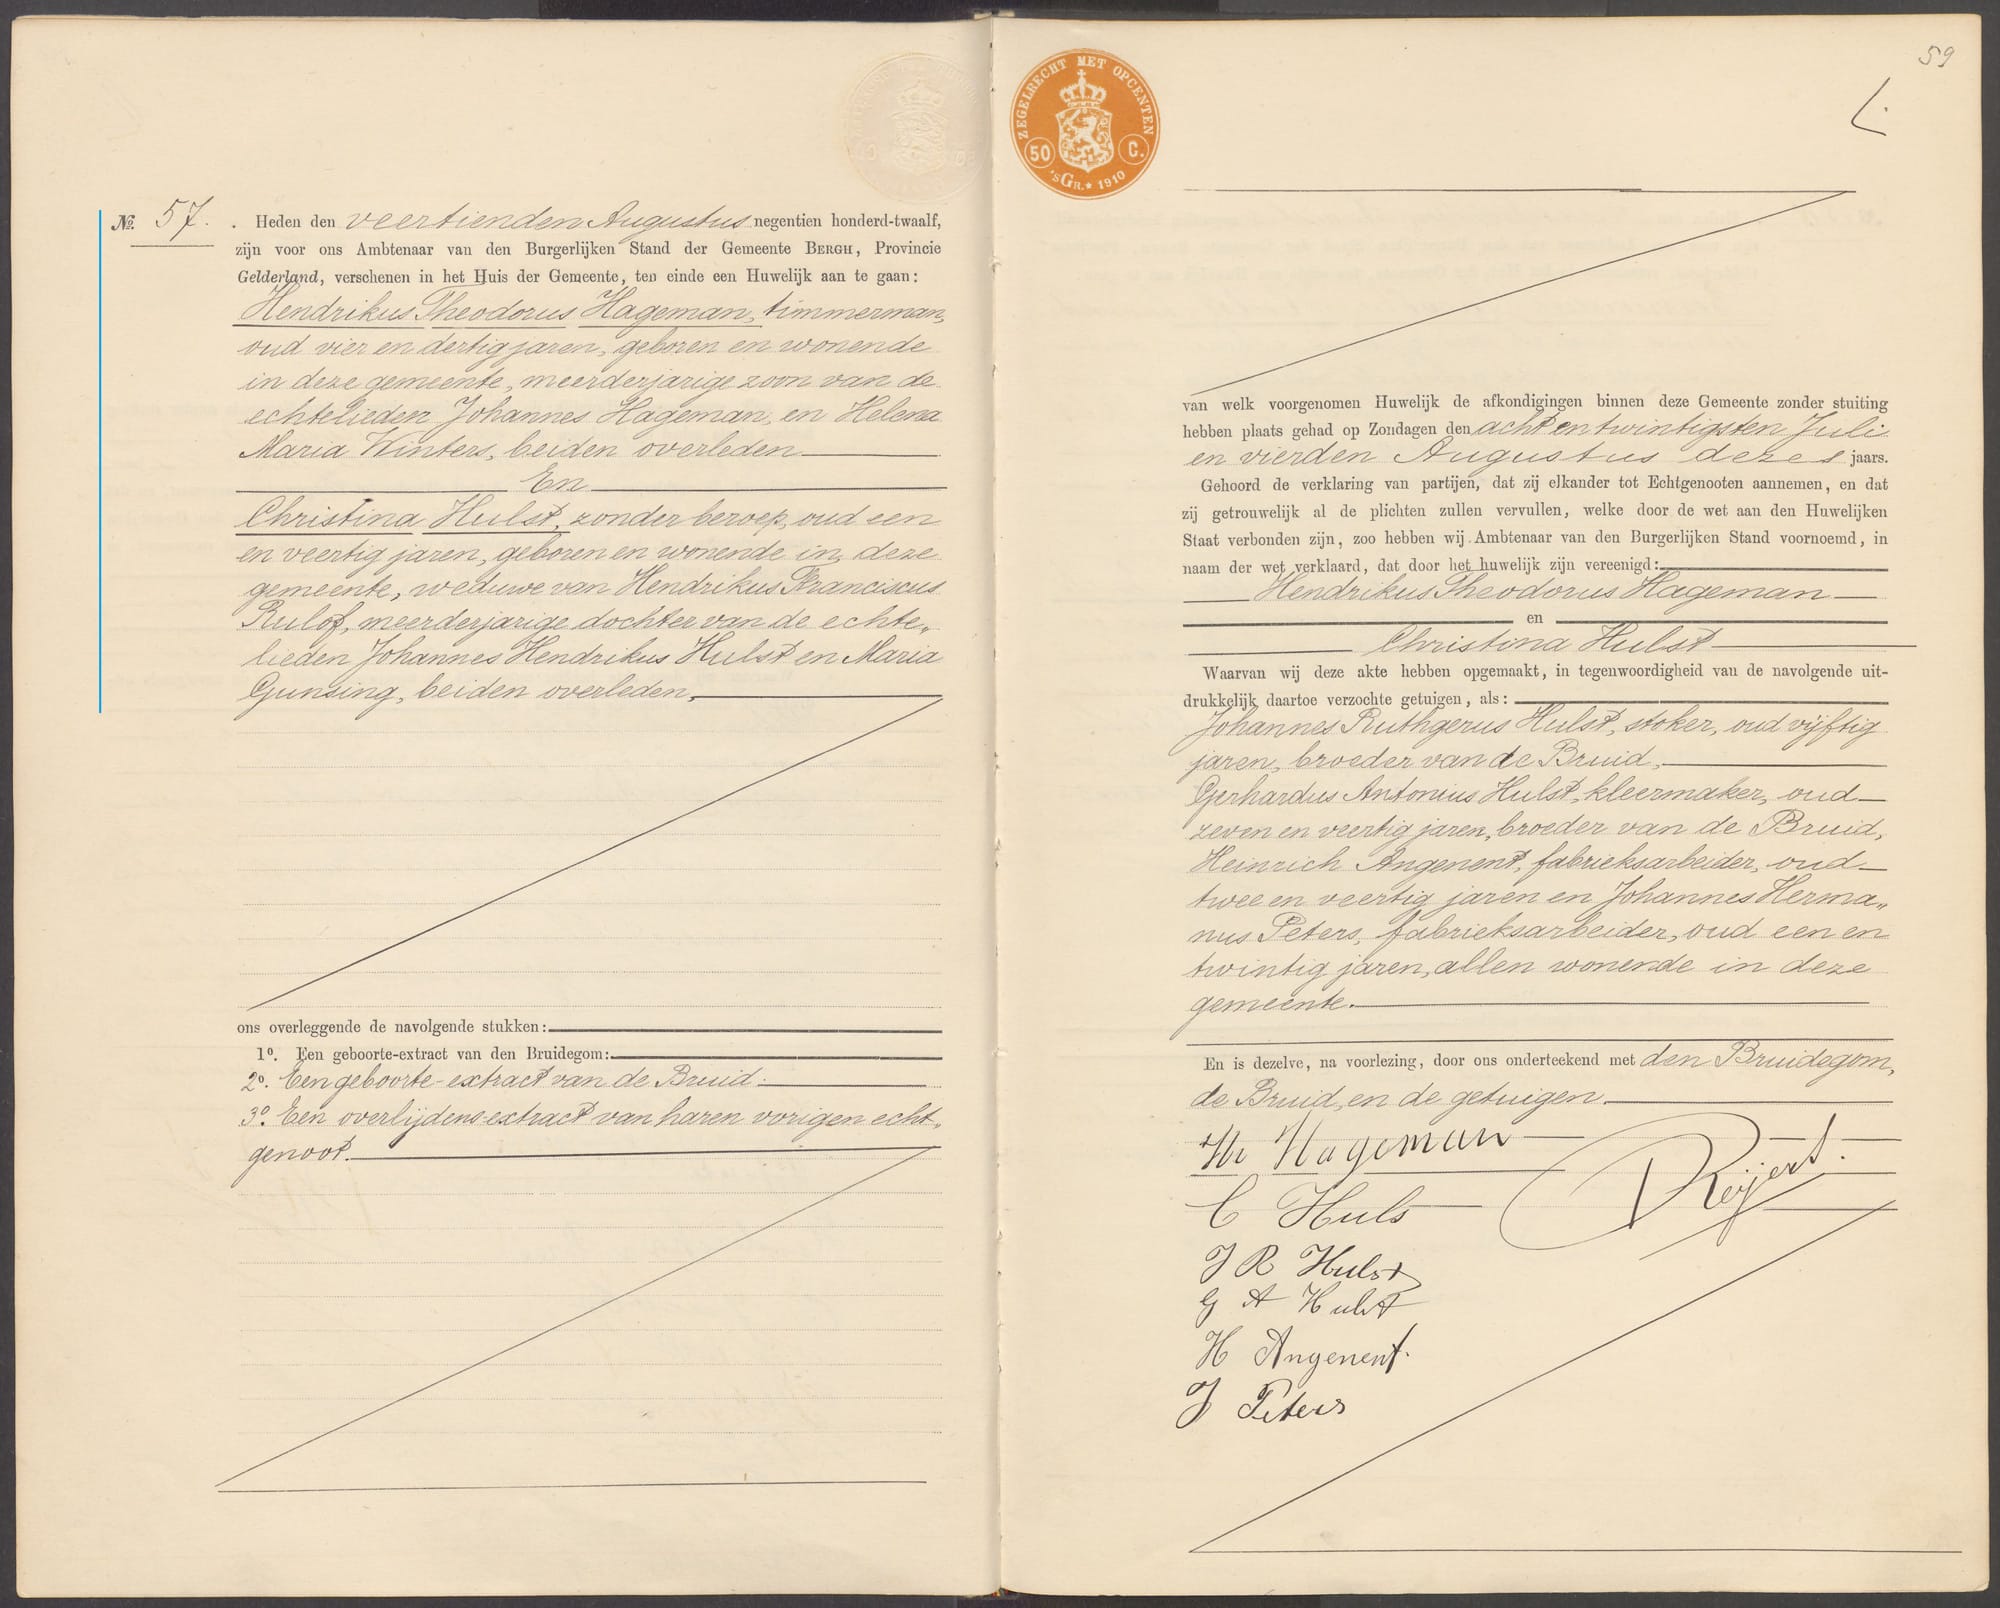 No. 57. Heden den veertienden Augustus negentien honderd-twaalf,
zijn voor ons Ambtenaar van den Burgerlijken Stand der Gemeente BERGH, Provincie
Gelderland, verschenen in het Huis der Gemeente, ten einde een Huwelijk aan te gaan:
Hendrikus Theodorus Hageman, timmerman,
oud vier en dertig jaren, geboren en wonende
in deze gemeente, meerderjarige zoon van de
echtelieden Johannes Hageman, en Helena
Maria Winters, beiden overleden
En
Christina Hulst, zonder beroep, oud een
en veertig jaren, geboren en wonende in deze
gemeente, weduwe van Hendrikus Franciscus
Rulof, meerderjarige dochter van de echte„
lieden Johannes Hendrikus Hulst en Maria
Gunsing, beiden overleden,
ons overleggende de navolgende stukken:
1o. Een geboorte-extract van den Bruidegom:
2o. Een geboorte-extract van de Bruid.
3o. Een overlijdens-extract van haren vorigen echt„
genoot.
59
ZEGELRECHT MET OPCENTEN
50 C.
'sGR. * 1910
van welk voorgenomen Huwelijk de afkondigingen binnen deze Gemeente zonder stuiting
hebben plaats gehad op Zondagen den acht en twintigsten Juli
en vierden Augustus dezes jaars.
Gehoord de verklaring van partijen, dat zij elkander tot Echtgenooten aannemen, en dat
zij getrouwelijk al de plichten zullen vervullen, welke door de wet aan den Huwelijken
Staat verbonden zijn, zoo hebben wij Ambtenaar van den Burgerlijken Stand voornoemd, in
naam der wet verklaard, dat door het huwelijk zijn vereenigd:
Hendrikus Theodorus Hageman
en
Christina Hulst
Waarvan wij deze akte hebben opgemaakt, in tegenwoordigheid van de navolgende uit-
drukkelijk daartoe verzochte getuigen, als:
Johannes Ruthgerus Hulst, stoker, oud vijftig
jaren, broeder van de Bruid,
Gerhardus Antonius Hulst, kleermaker, oud
zeven en veertig jaren, broeder van de Bruid,
Heinrich Angenent, fabrieksarbeider, oud
twee en veertig jaren en Johannes Herma„
nus Peters, fabrieksarbeider, oud een en
twintig jaren, allen wonende in deze
gemeente.
En is dezelve, na voorlezing, door ons onderteekend met den Bruidegom,
de Bruid, en de getuigen.
Hr Hageman
C Huls
J R Hulst
G A Hulst
H Angenent.
J Peters